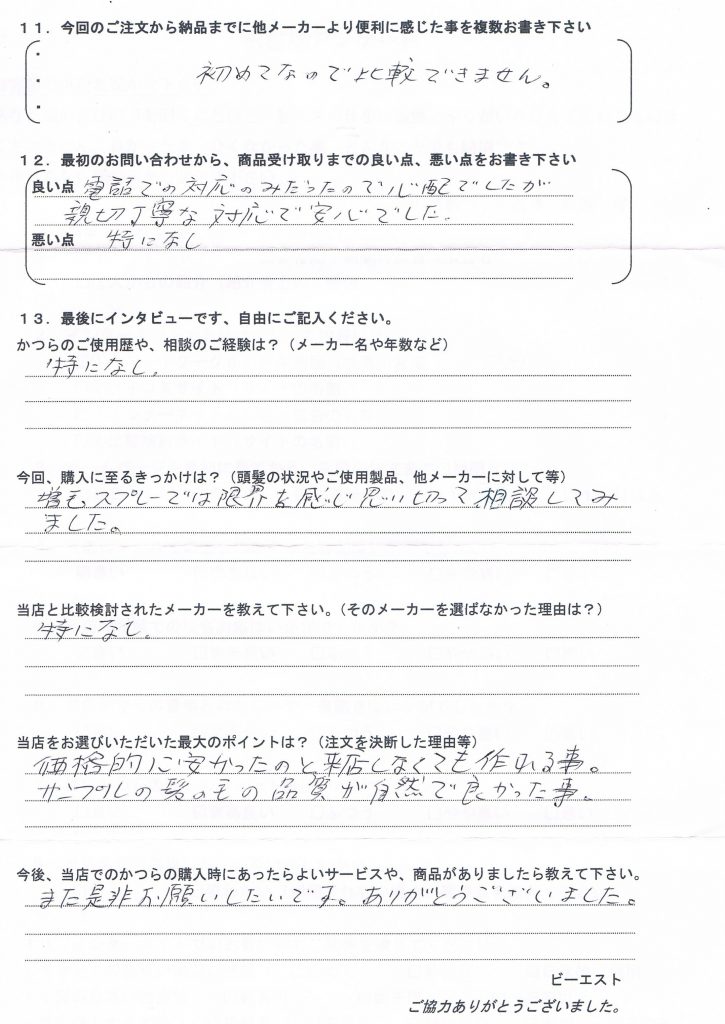 １１．今回のご注文から納品までに他メーカーより便利に感じた事を複数お書き下さい
・
・ 初めてなので比較できません。
・
１２．最初のお問い合わせから、商品受け取りまでの良い点、悪い点をお書き下さい
良い点 電話での対応のみだったので心配でしたが
親切丁寧な対応で安心でした。
悪い点 特になし
１３．最後にインタビューです、自由にご記入ください。
かつらのご使用歴や、相談のご経験は？（メーカー名や年数など）
特になし。
今回、購入に至るきっかけは？（頭髪の状況やご使用製品、他メーカーに対して等）
増毛スプレーでは限界を感じ思い切って相談してみ
ました。
当店と比較検討されたメーカーを教えて下さい。（そのメーカーを選ばなかった理由は？）
特になし。
当店をお選びいただいた最大のポイントは？（注文を決断した理由等）
価格的に安かったのと来店しなくても作れる事。
サンプルの髪の毛の品質が自然で良かった事。
今後、当店でのかつらの購入時にあったらよいサービスや、商品がありましたら教えて下さい。
また是非お願いしたいです。ありがとうございました。
ビーエスト
ご協力ありがとうございました。